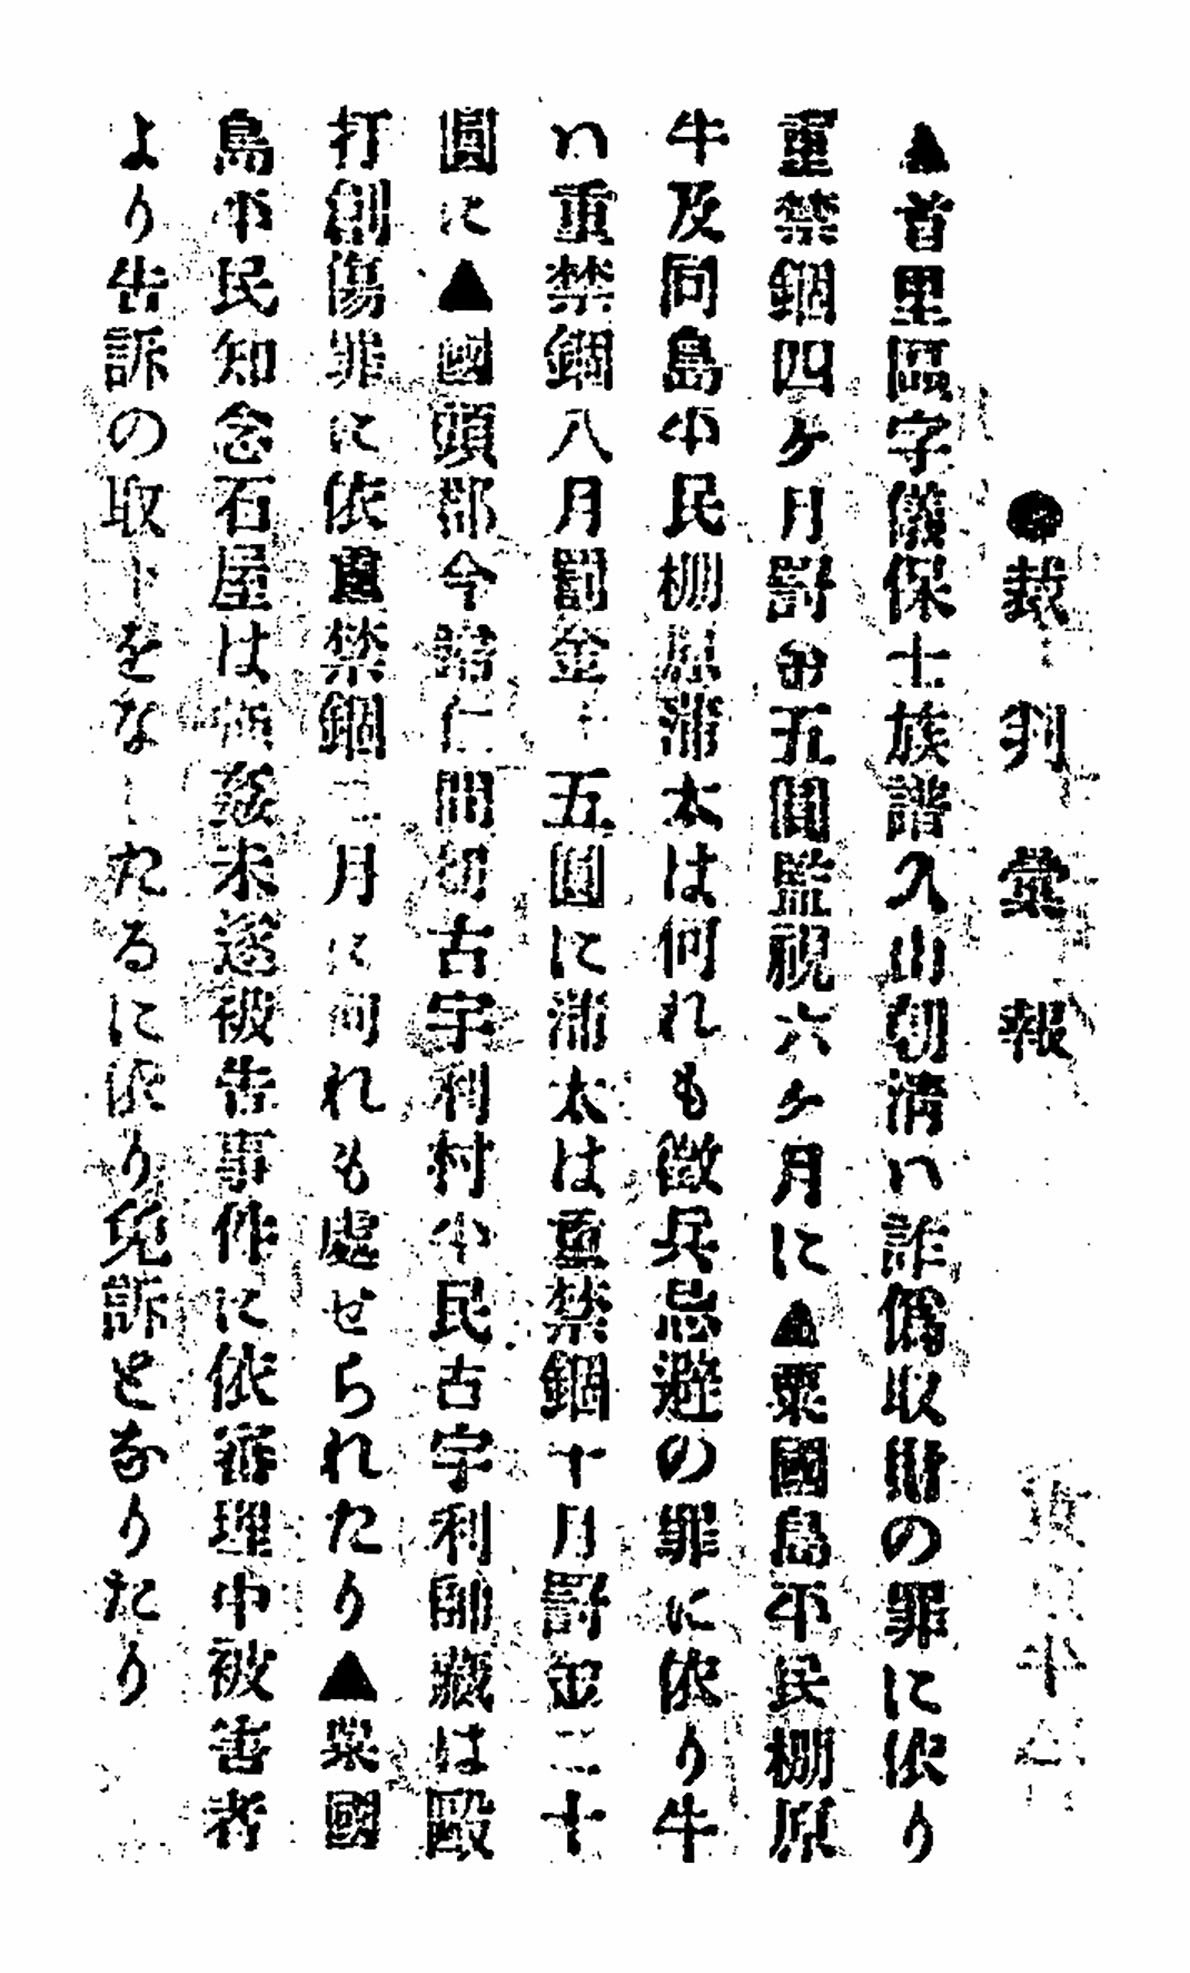 ●裁判彙報
▲首里區字儀保士族譜久山朝淸ハ詐僞取財の罪に依り
重禁錮四ケ月罰金五圓監視六ケ月に▲粟國島平民棚原
牛及同島平民棚原蒲太は何れも徵兵忌避の罪に依り牛
ハ重禁錮八月罰金十五圓に蒲太は重禁錮十月罰金二十
圓に▲國頭郡今歸仁間切古宇利村平民古宇利師藏は毆
打創傷罪に依重禁錮二月に何れも處せられたり▲粟國
島平民知念石屋は强姦未遂被告事件に依審理中被害者
より告訴の取下をなしたるに依り免訴となりたり